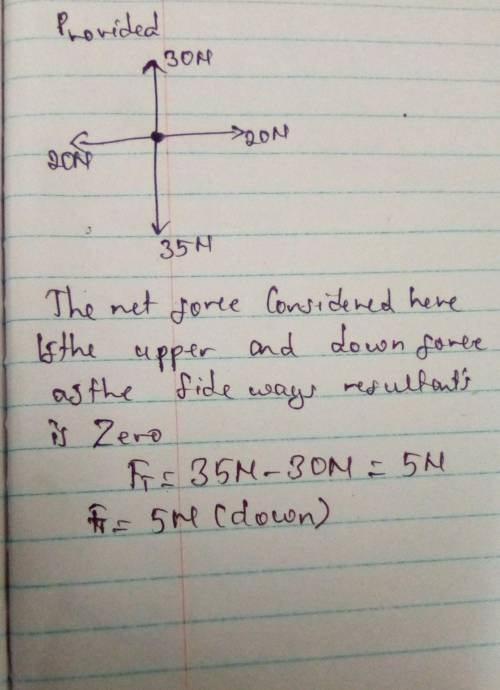 Provided
30N
20N
20N
35N
The net force Considered here
is the upper and down force
as the side ways resultant's
is Zero
F_T = 35N - 30N = 5N
F_T = 5N (down)